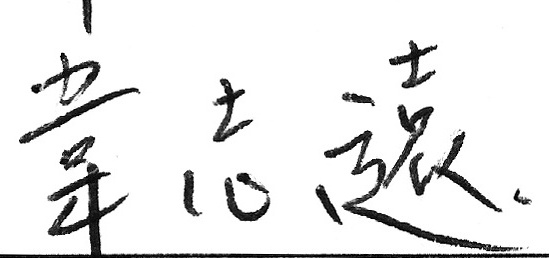 韋志遠